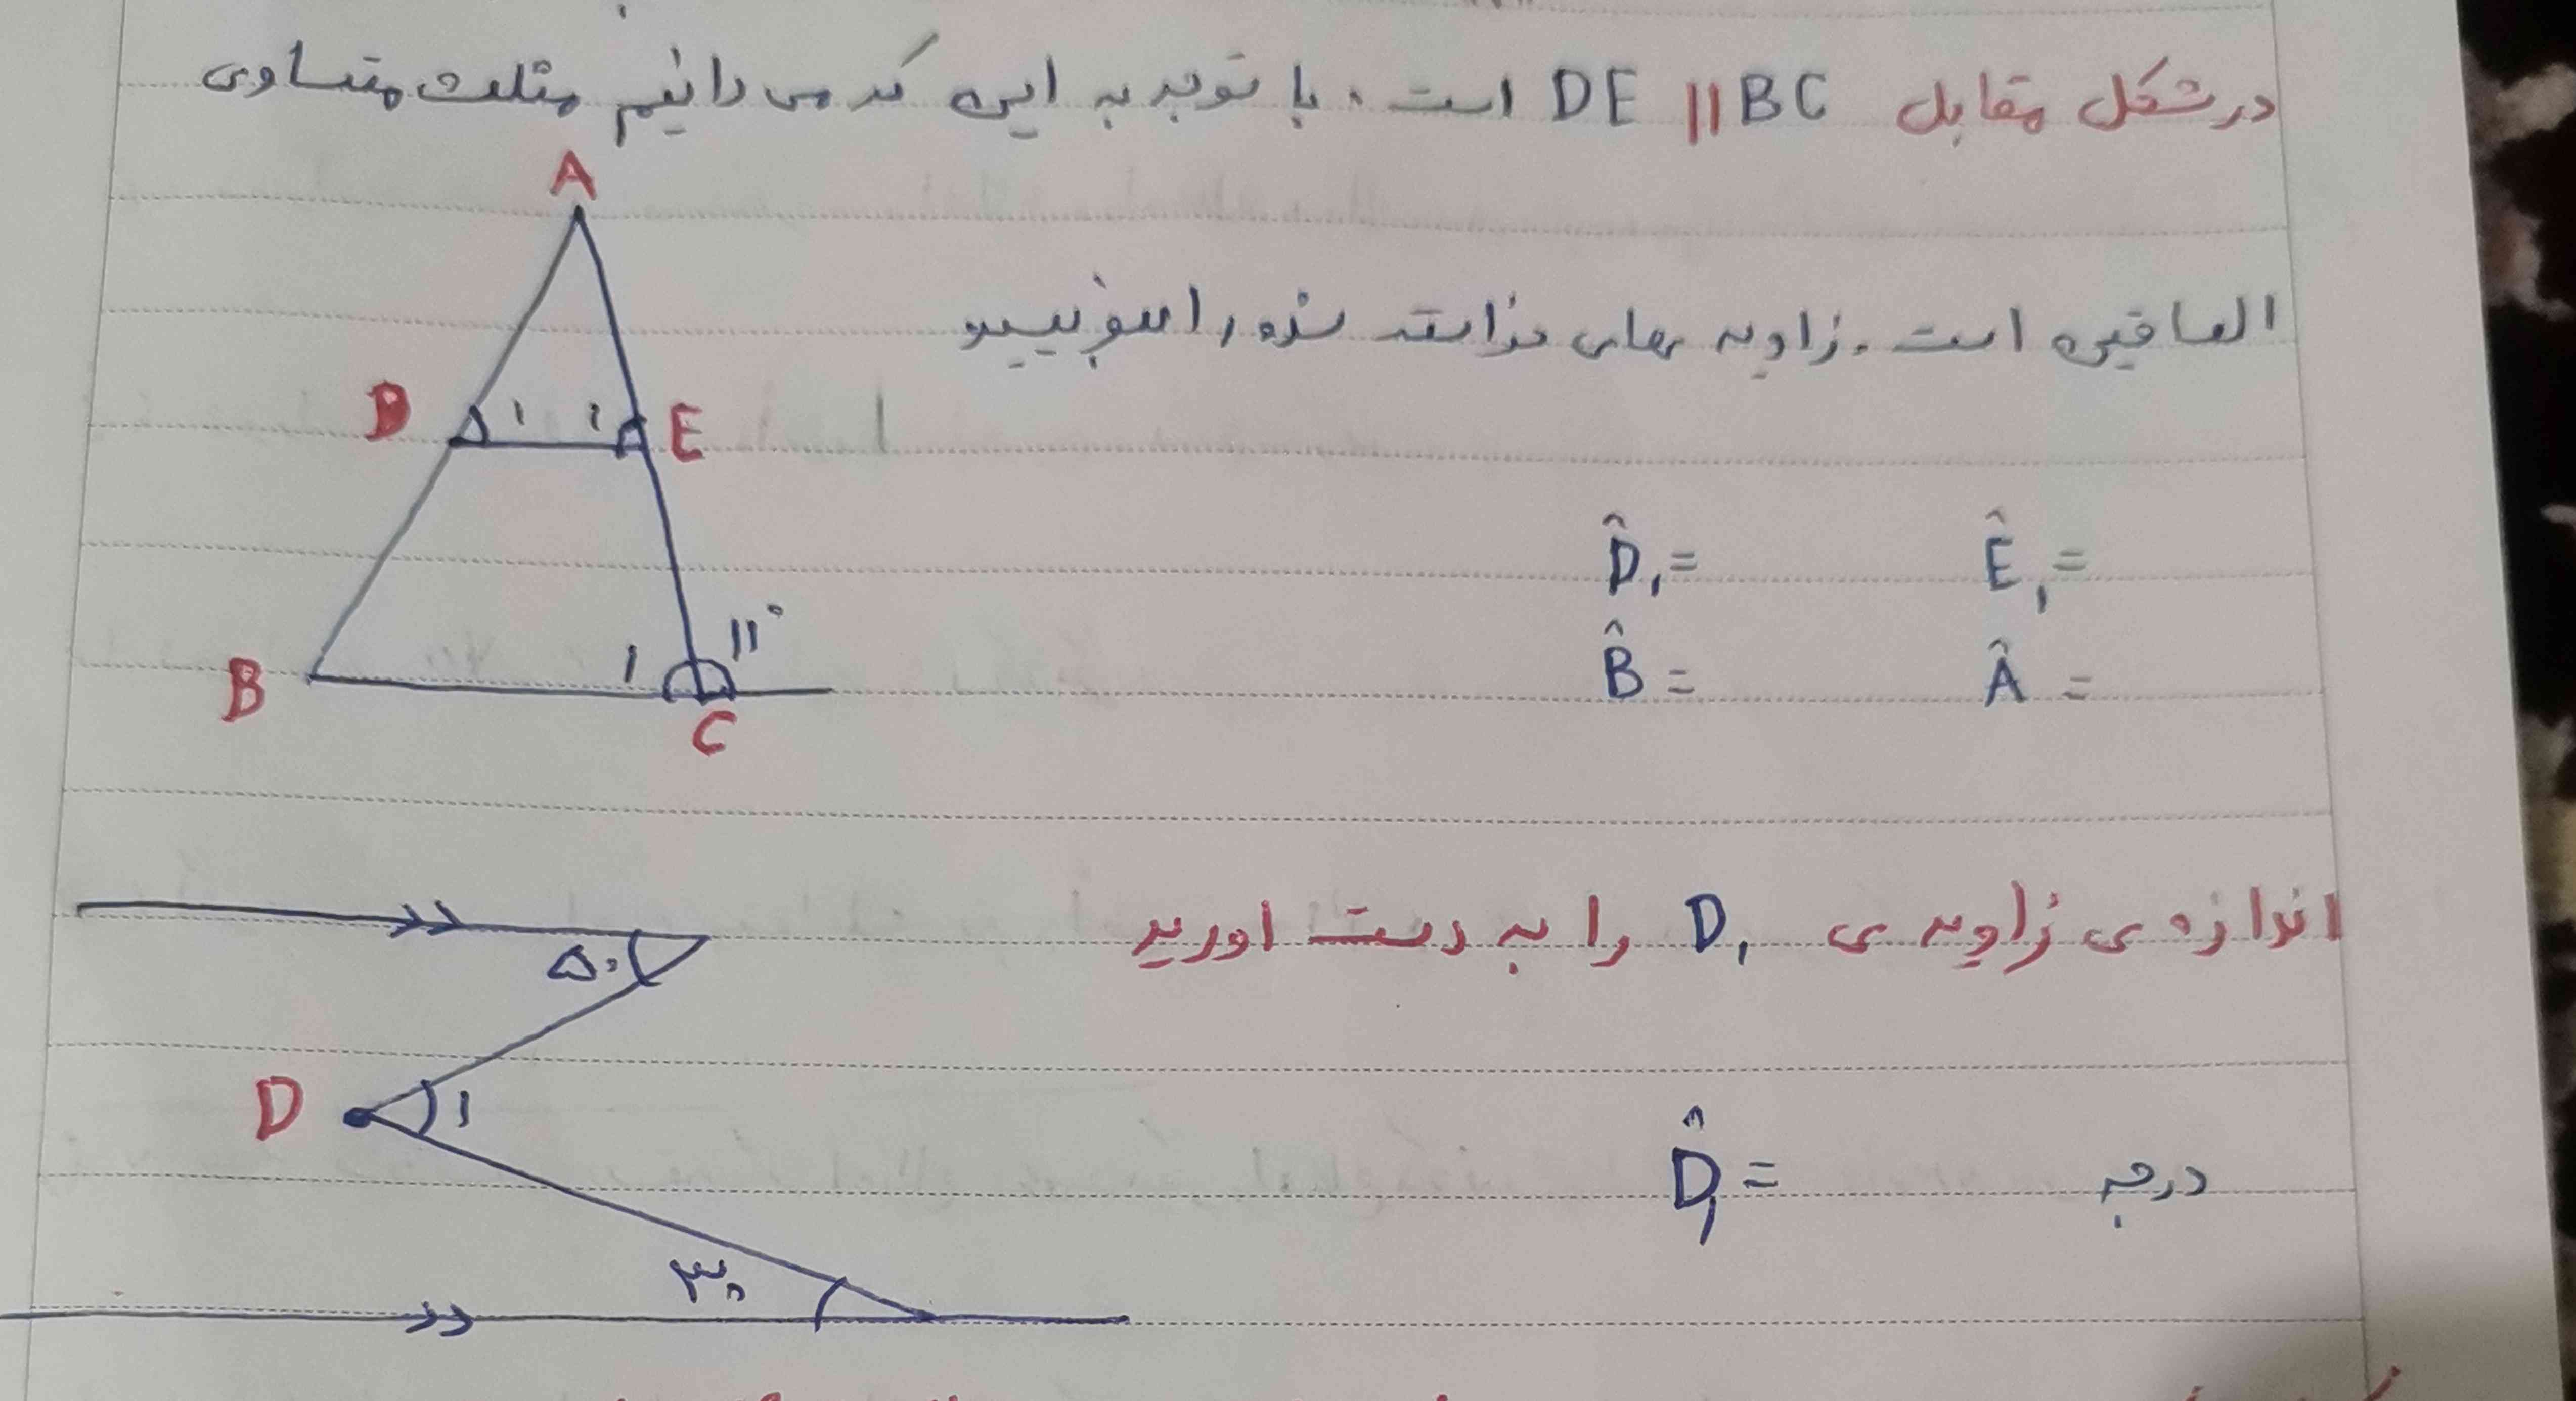 در شکل مقابل DE || BC است. با توجه به این که می دانیم مثلث متساوی
A
الساقین است. زاویه های خواسته شده را بنویسید
D ۱ ۱ E
D̂₁= Ê₁=
B ۱ ۱۱° C
B̂ = Â =
اندازه ی زاویه ی D₁ را به دست اورید
۵۰
D ۱
D̂₁= درجه
۳۰